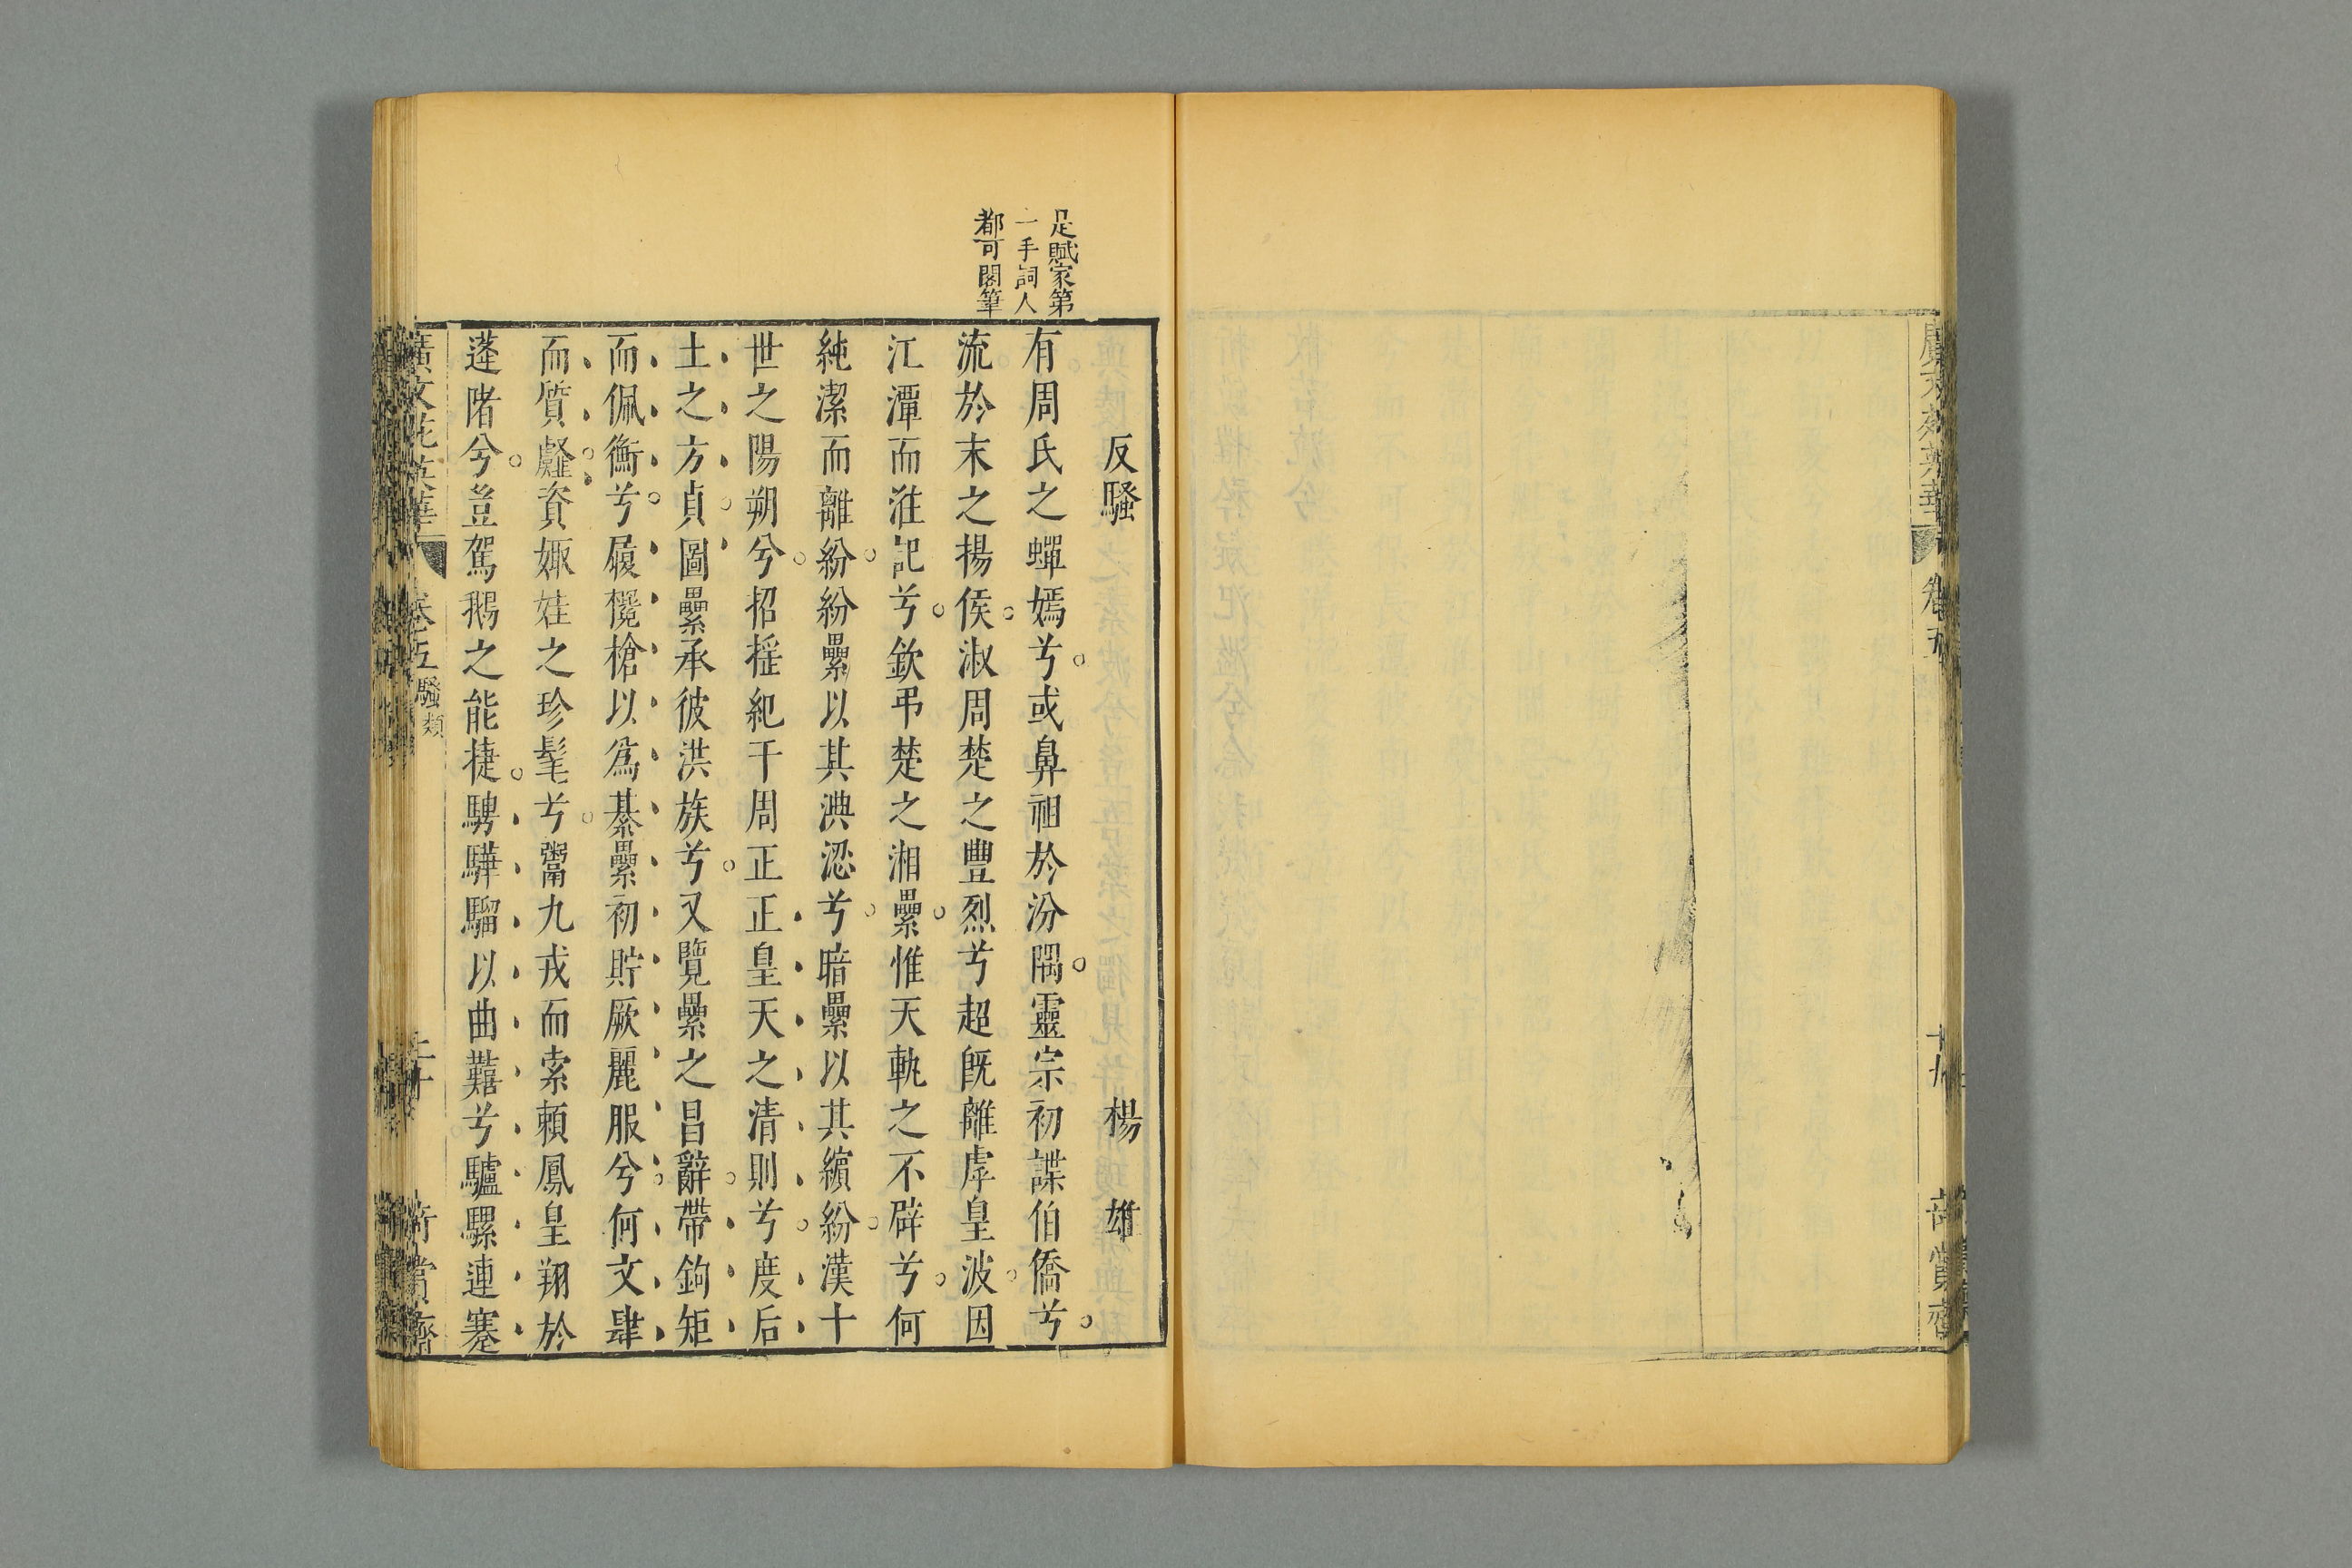 廣文苑英華 卷五 十九 奇賞齋
足賦家第
一手詞人
都可閣筆
反騷 楊雄
有周氏之蟬嫣兮或鼻祖於汾隅靈宗初諜伯僑兮
流於末之揚侯淑周楚之豐烈兮超旣離虖皇波因
江潭而淮記兮欽弔楚之湘纍惟天軌之不辟兮何
純潔而離紛紛纍以其淟涊兮暗纍以其繽紛漢十
世之陽朔兮招摇紀于周正正皇天之清則兮度后
土之方貞圖纍承彼洪族兮又覽纍之昌辭帶鉤矩
而佩衡兮履欃槍以爲綦纍初貯厥麗服兮何文肆
而質䪥資娵娃之珍髢兮鬻九戎而索賴鳳皇翔於
蓬陼兮豈駕鵝之能捷騁驊騮以曲囏兮驢騾連蹇
廣文苑英華 卷五 騷類 二十 奇賞齋